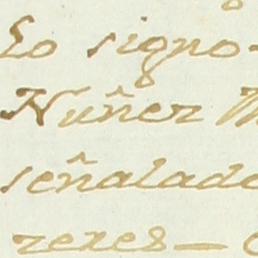 Lo signo-
Nuñez
señalado
rexes—